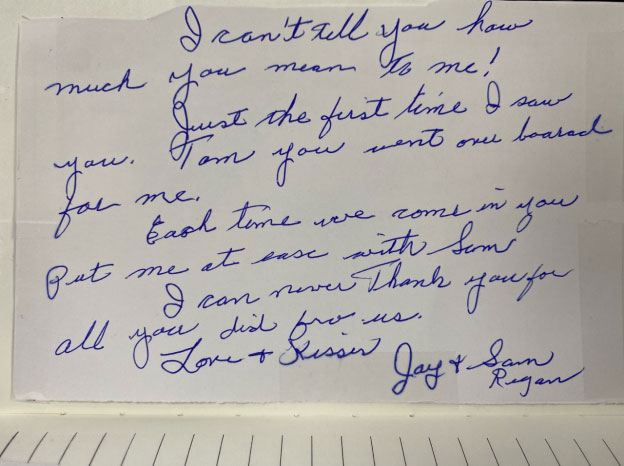 I can't tell you how
much you mean to me!
Just the first time I saw
you. Tom you went over boarad
for me.
Each time we come in you
Put me at ease with Sam
I can never Thank you for
all you did fro us.
Love + Kisses
Jay + Sam
Regan